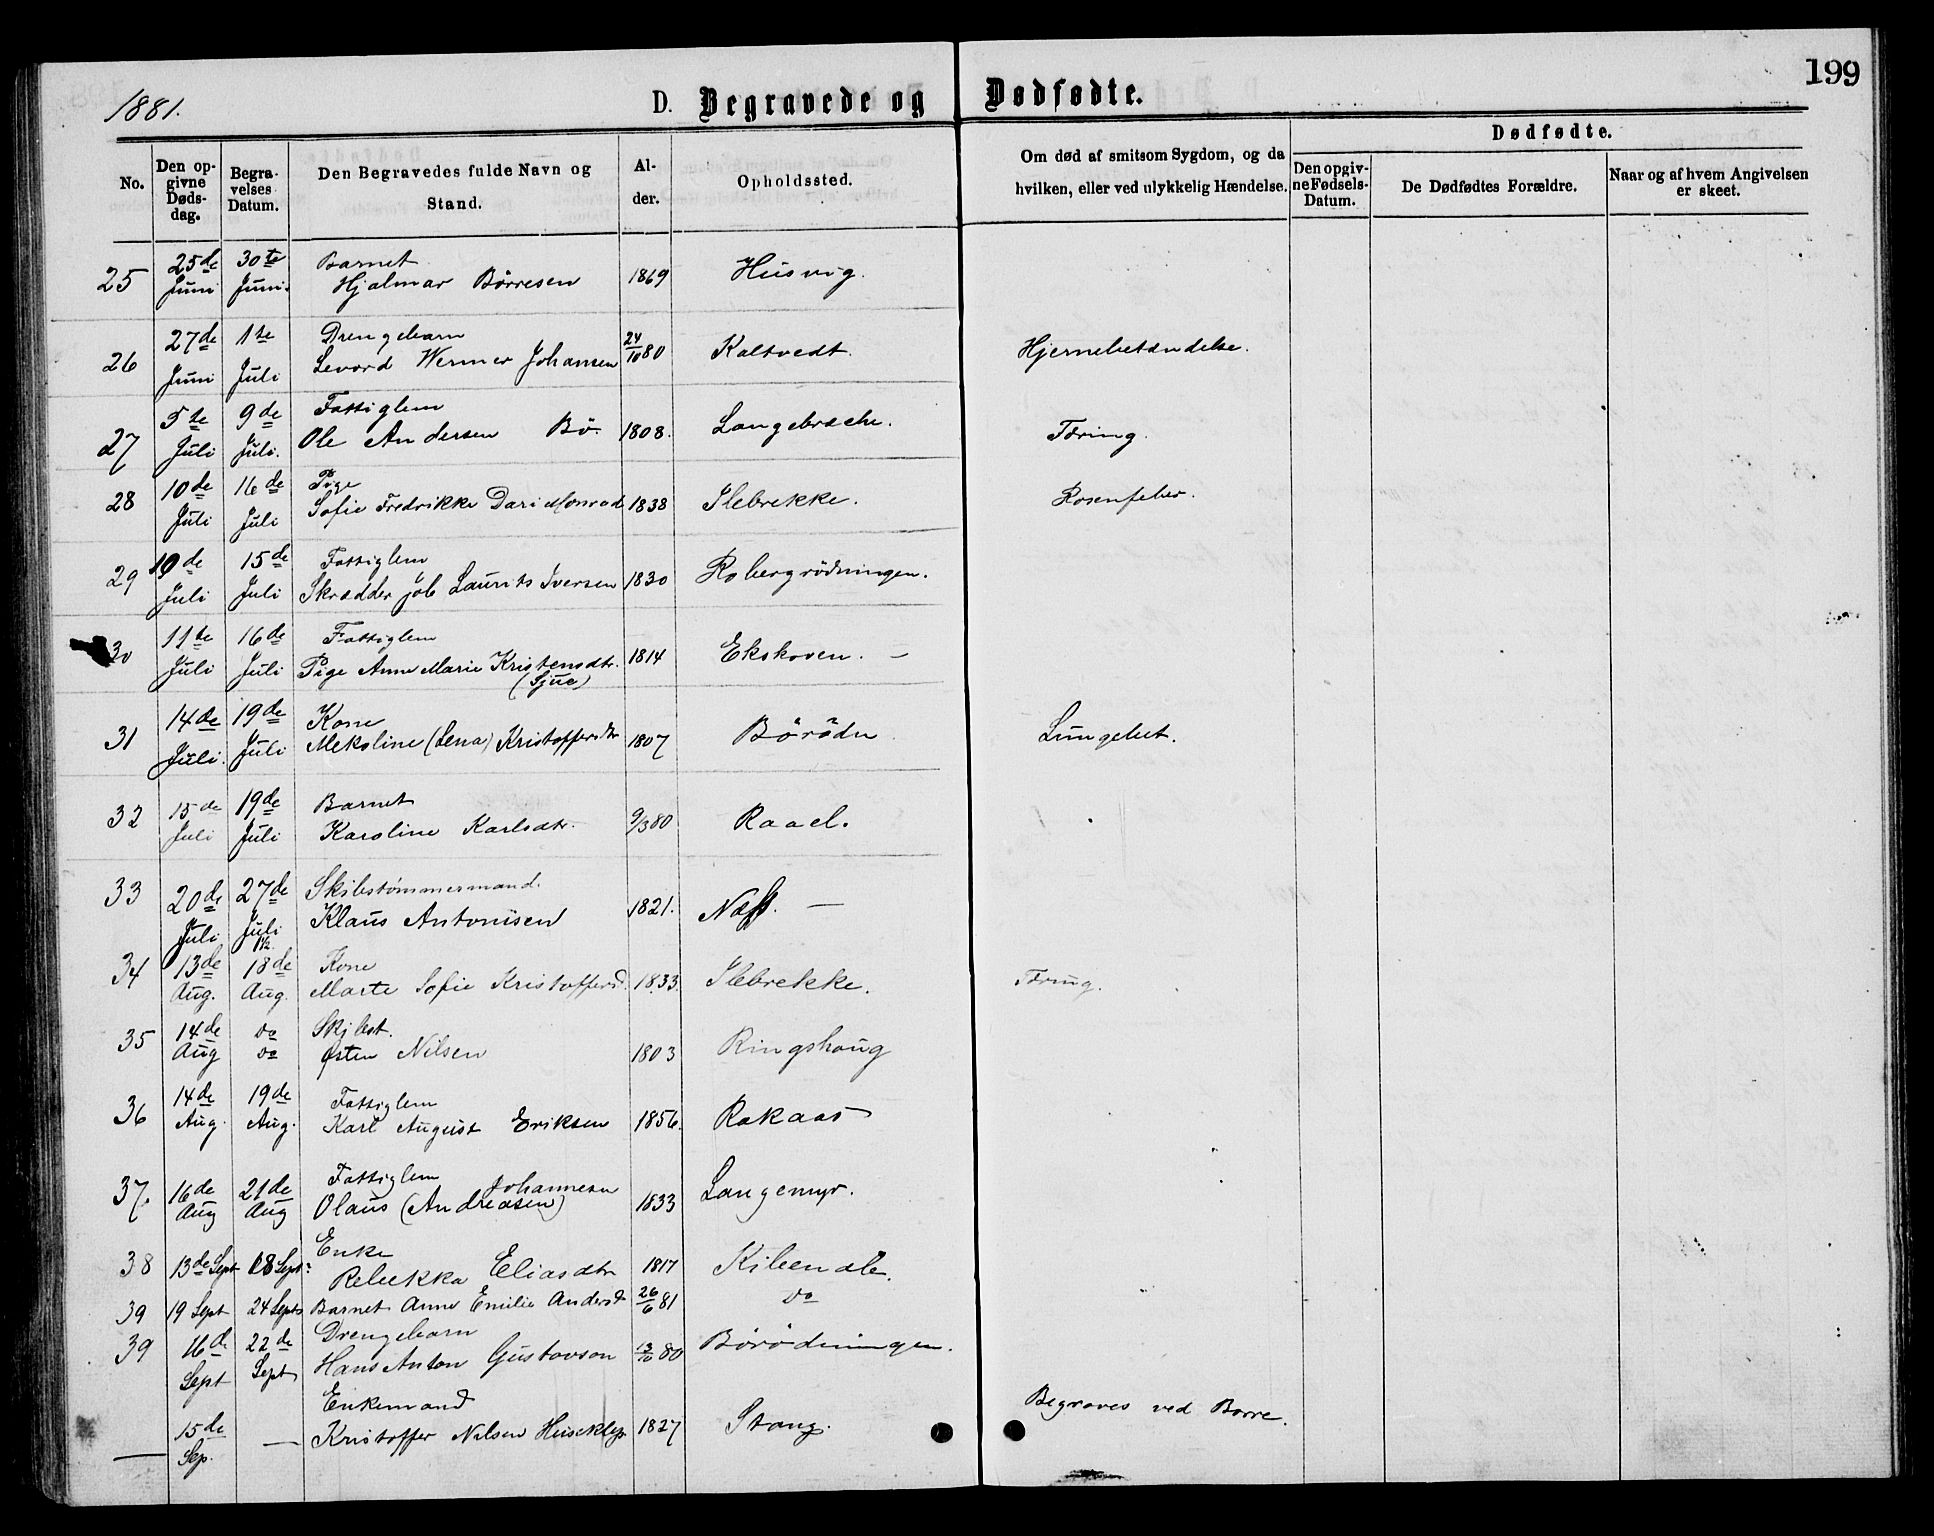 199
1881.
D. Begravede og Dødfødte.
Dødfødte.
No.
Den opgivne Dødsdag.
Begravelses Datum.
Den Begravedes fulde Navn og Stand.
Alder.
Opholdssted.
Om død af smitsom Sygdom, og da hvilken, eller ved ulykkelig Hændelse.
Den opgivne Fødsels-Datum.
De Dødfødtes Forældre.
Naar og af hvem Angivelsen er skeet.
25 25de Juni 30te Juni. Barnet
Hjalmar Börresen 1869 Husvig.
26 27de Juni 1te Juli Drengebarn
Sevord Werner Johansen 24/10 80 Kaltvedt. Hjernebetændelse.
27 5te Juli 9de Juli. Fattiglem
Ole Andersen Bö. 1808. Langebræche. Tæring.
28 10de Juli 16de Juli Pige
Sofie Fredrikke Monrad 1838 Ilebrekke. Rosenfeber.
29 10de Juli 15de Juli Fattiglem
Skrædder Job Laurits Iversen 1830 Robergrödningen.
30 11te Juli 16de Juli Fattiglem
Pige Anne Marie Kristensdtr. 1814 Ekskoven. —
(Sjue)
31 14de Juli. 19de Juli Kone
Mekoline (Lena) Kristoffersdtr 1807 Börödn Lungebet.
32 15de Juli 19de Juli Barnet
Karoline Karlsdtr. 9/3 80 Raael.
33 20de Juli 27de Juli Skibstømmermand.
Klaus Antonisen 1821. Næss. —
34 13de Aug. 18de Aug. Kone
Marte Sofie Kristoffersd. 1833. Ilebrekke. Tæring.
35 14de Aug do do Skibst.
Østen Nilsen 1803 Ringshaug
36 14de Aug. 19de Aug. Fattiglem
Karl August Eriksen 1856. Rakaas
37. 16de Aug 21de Aug Fattiglem Johannesen
Olaus (Andreasen) 1833 Langemyr.
38 13de Sept 18 Sept. Enke
Rebekka Eliasdtr 1817 Kileendle.
39 19 Sept 24 Sept Barnet Anne Emilie Andersd 26/6 81 do
39 16de Sept 22de Sept Drengebarn
Hans Anton Gustavson 13/10 80 Börödningen.
— 15de Sep. — Enkemand
Kristoffer Nilsen Huseklep 1827 Stang. Begraves ved Borre.